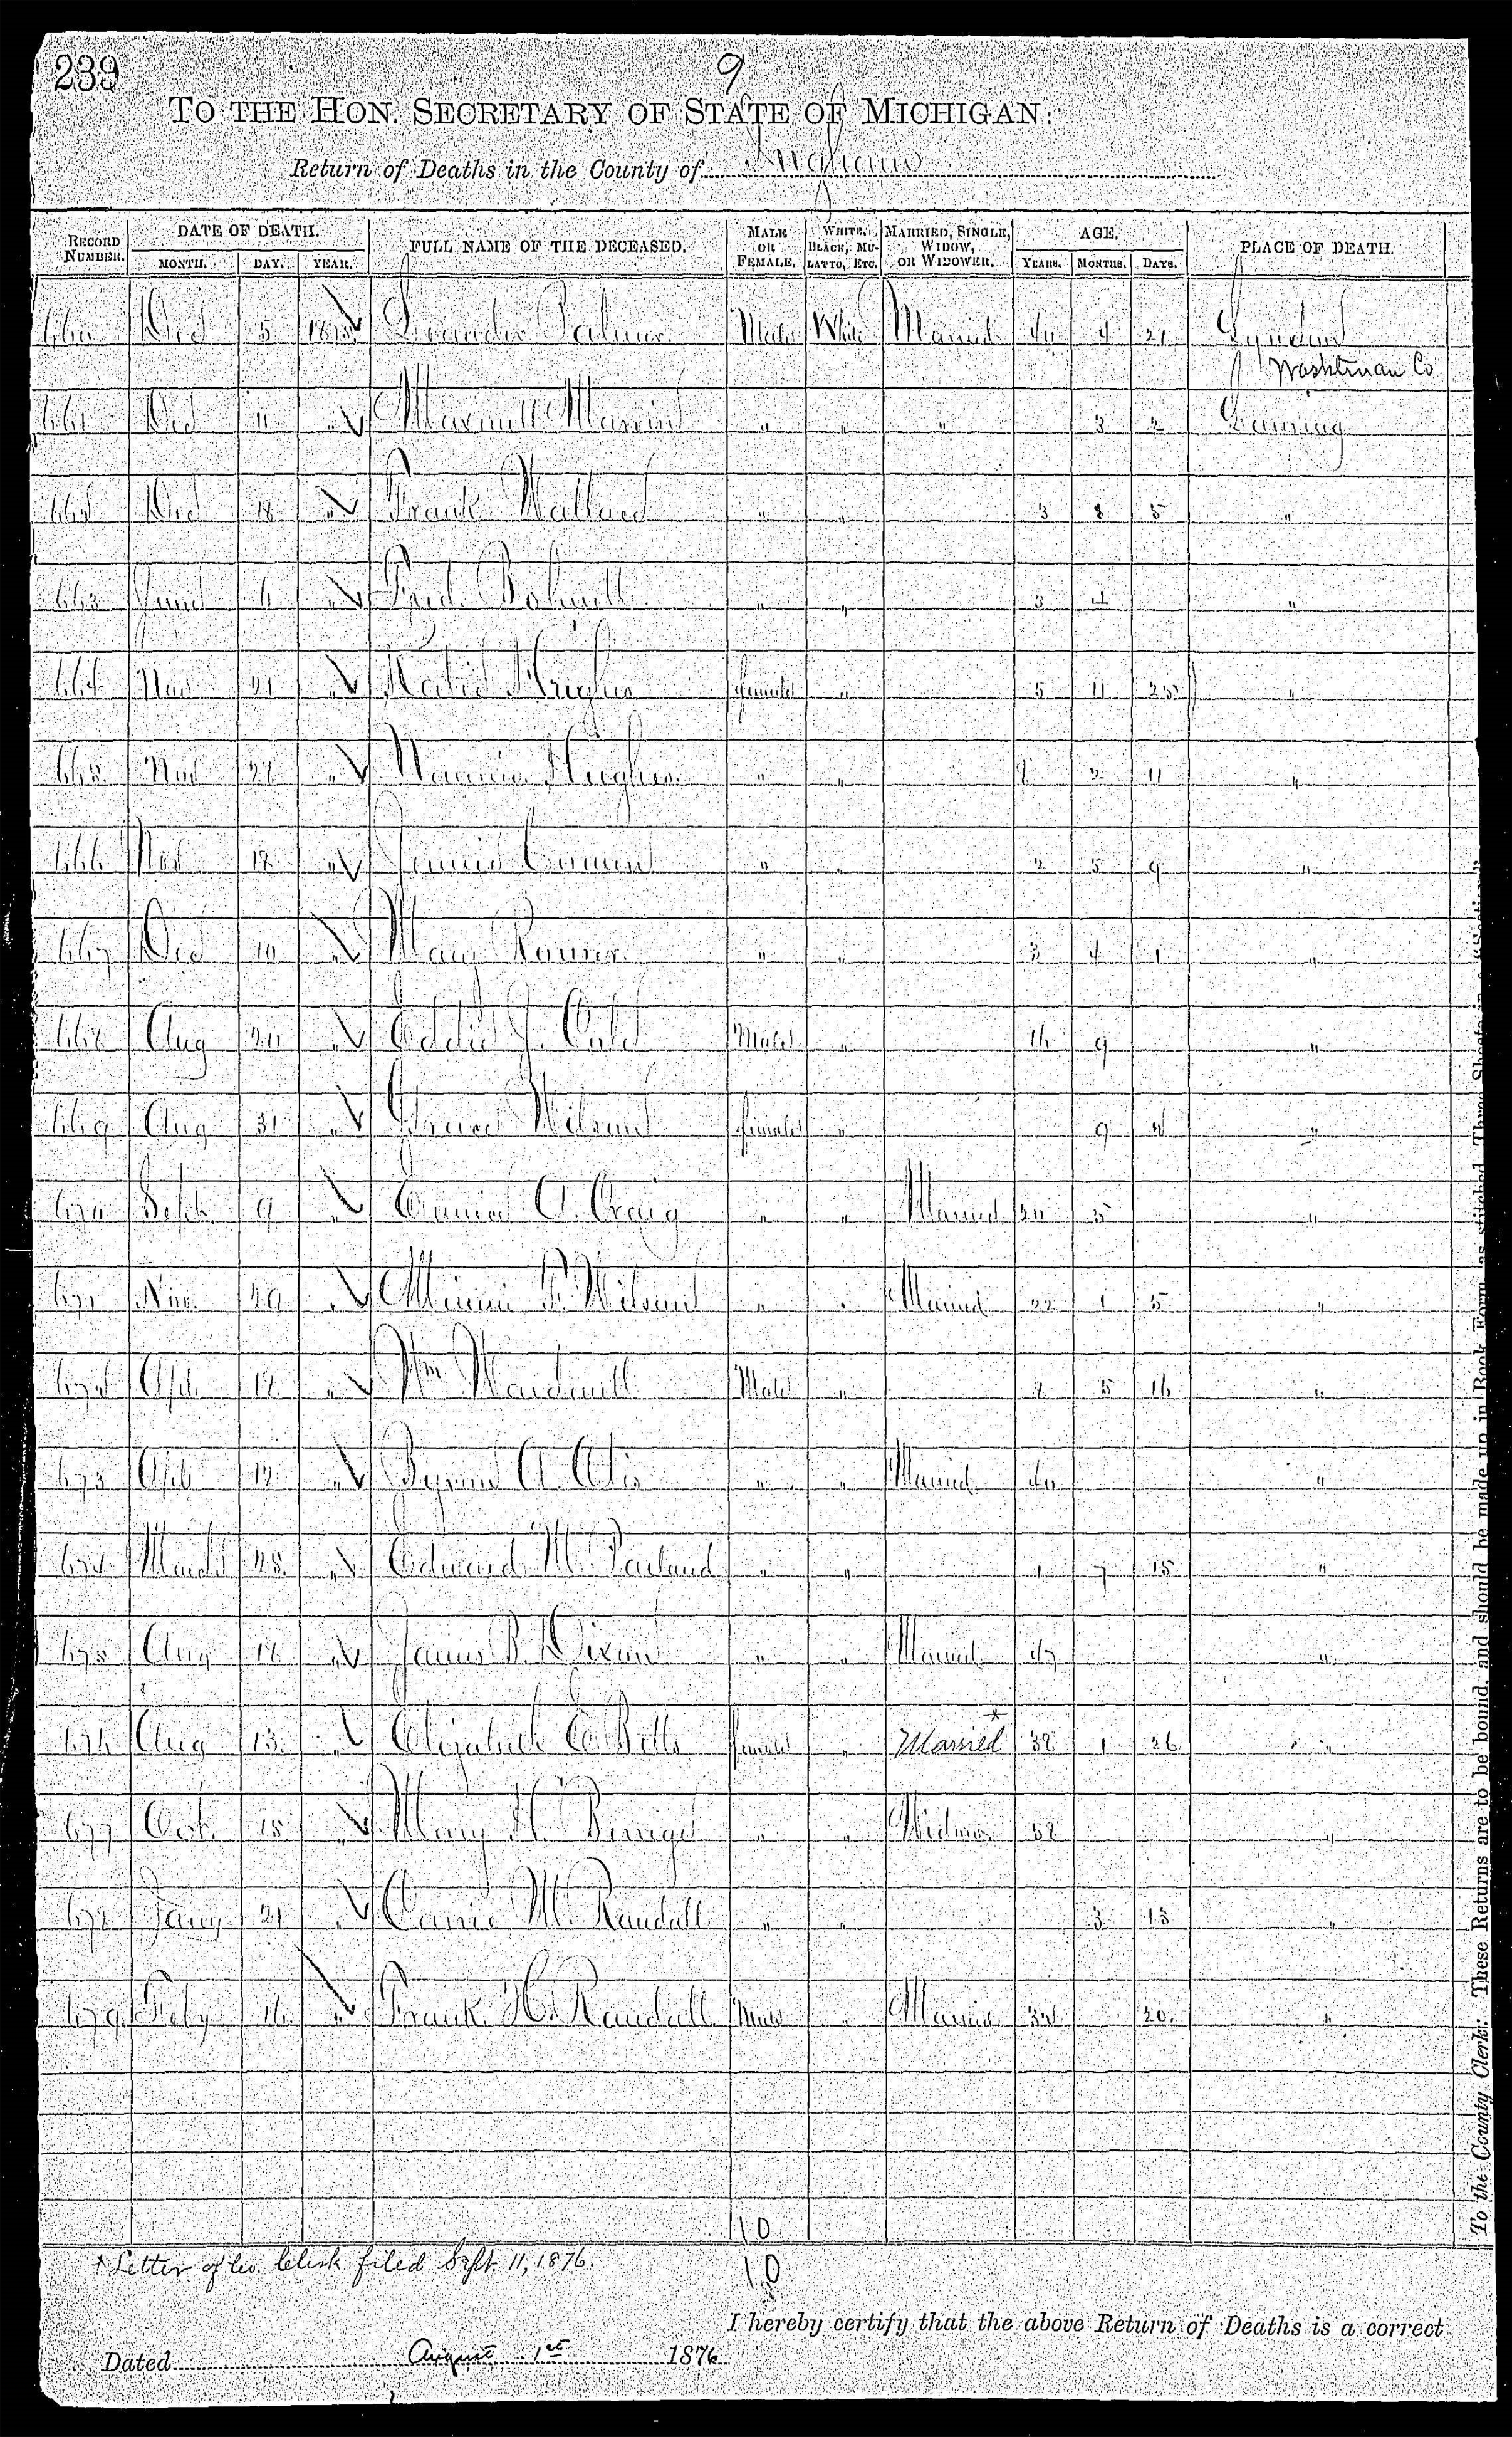 239
9
TO THE HON. SECRETARY OF STATE OF MICHIGAN:
Return of Deaths in the County of Ingham
RECORD NUMBER. DATE OF DEATH. MONTH. DAY. YEAR. FULL NAME OF THE DECEASED. MALE OR FEMALE. WHITE, BLACK, MULATTO, ETC. MARRIED, SINGLE, WIDOW, OR WIDOWER. AGE. YEARS. MONTHS. DAYS. PLACE OF DEATH.
660 Dec 5 1875 Leander Palmer Male White Married 40 4 21 Lyndon
Washtenaw Co
661 Dec 11 " " " " 3 2 Lansing
662 Dec 18 " Frank " " 3 5 "
663 6 " Fred. " " 3 "
664 Nov 21 " Katie Hughes female " 5 11 "
665 Nov 28 " Hughes " " 8 2 11 "
666 Nov 18 " Jennie " " 2 5 9 "
667 Dec 10 " " " 3 4 1 "
668 Aug 20 " Eddie J. Cole Male " 16 9 "
669 Aug 31 " Grace Wilson female " 9 "
670 Sept. 9 " A. Craig " " Married 20 5 "
671 Nov. 29 " Minnie F. Wilson " " Married 22 1 5 "
672 18 " Wm Wardwell Male " 8 5 16 "
673 " Byron A. Otis " " Married 40 "
674 March 25 " Edward M. " " 1 7 15 "
675 Aug 18 " James B. Dixon " " Married 47 "
676 Aug 13 " Elizabeth E. Betts female " Married* 38 1 26 "
677 Oct. 15 " Mary H. " " Widow 58 "
678 Jany 21 " Carrie M. Randall " " 3 13 "
679 Feby 16 " Frank H. Randall Male " Married 32 20. "
10
* Letter of Co. Clerk filed Sept. 11, 1876.
10
I hereby certify that the above Return of Deaths is a correct
Dated August 1st 1876
To the County Clerk: These Returns are to be bound, and should be made up in Book Form, as stitched. Three Sheets in a "Section."